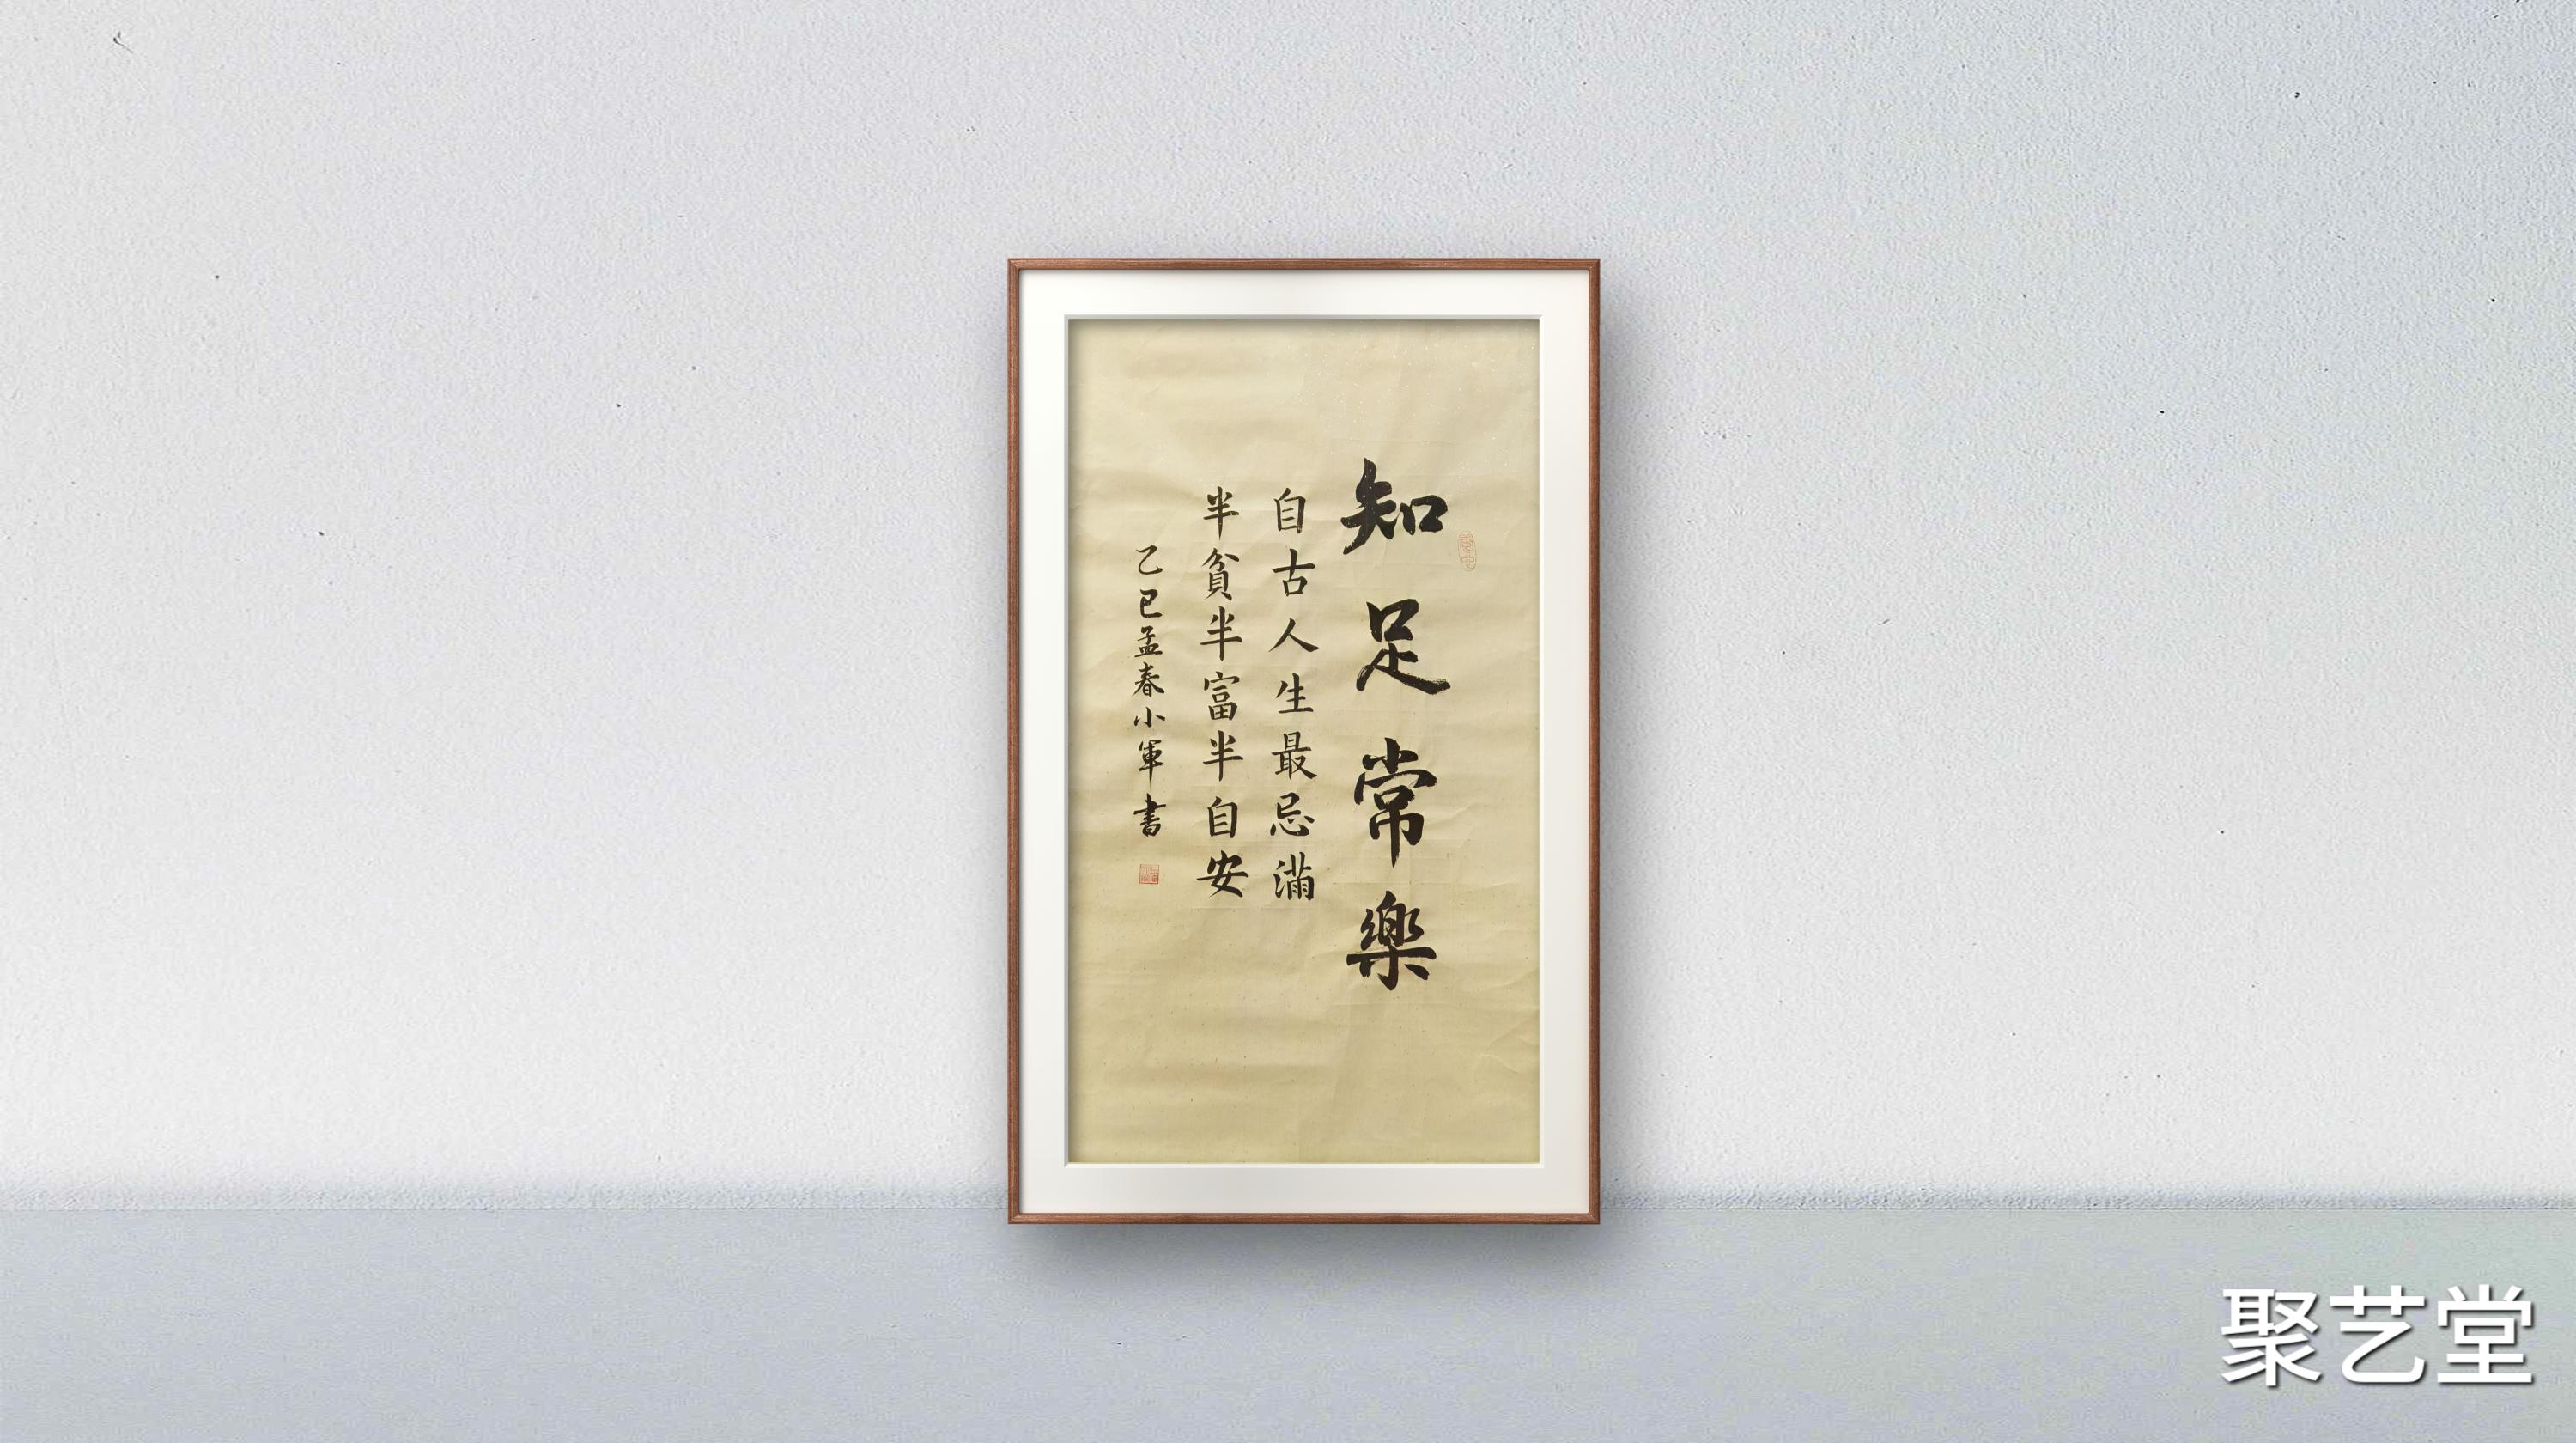 知足常樂
自古人生最忌滿
半貧半富半自安
乙巳孟春小軍書
聚艺堂